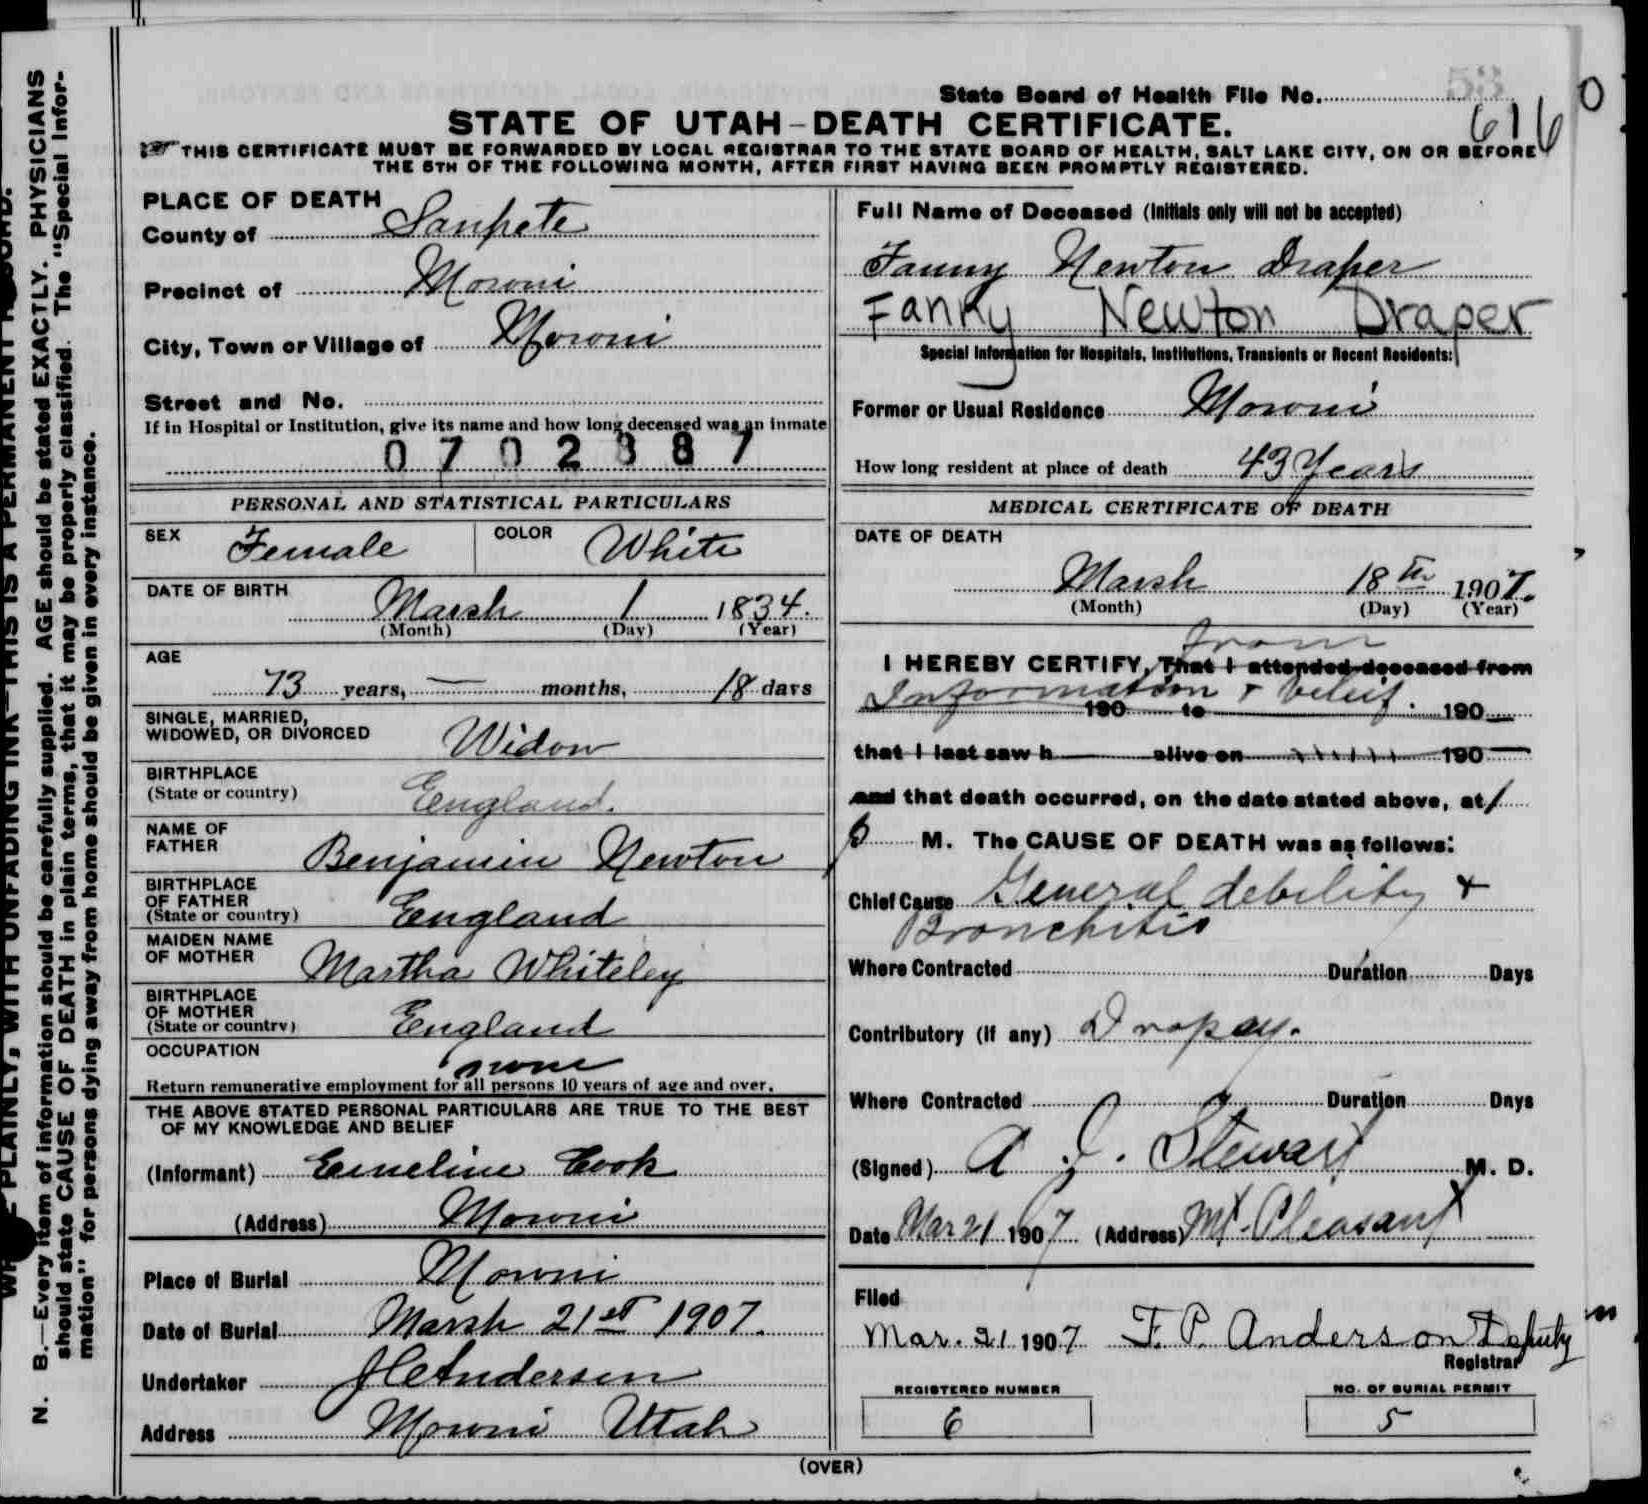 N. B.—Every item of information should be carefully supplied. AGE should be stated EXACTLY. PHYSICIANS
should state CAUSE OF DEATH in plain terms, that it may be properly classified. The "Special Infor-
mation" for persons dying away from home should be given in every instance.
PLAINLY, WITH UNFADING INK—THIS IS A PERMANENT
State Board of Health File No.
6160
STATE OF UTAH—DEATH CERTIFICATE.
THIS CERTIFICATE MUST BE FORWARDED BY LOCAL REGISTRAR TO THE STATE BOARD OF HEALTH, SALT LAKE CITY, ON OR BEFORE
THE 5TH OF THE FOLLOWING MONTH, AFTER FIRST HAVING BEEN PROMPTLY REGISTERED.
PLACE OF DEATH
County of Sanpete
Precinct of Moroni
City, Town or Village of Moroni
Street and No.
If in Hospital or Institution, give its name and how long deceased was an inmate
0702387
PERSONAL AND STATISTICAL PARTICULARS
SEX Female COLOR White
DATE OF BIRTH
March 1 1834.
(Month) (Day) (Year)
AGE
73 years, — months, 18 days
SINGLE, MARRIED,
WIDOWED, OR DIVORCED Widow
BIRTHPLACE
(State or country) England.
NAME OF
FATHER Benjamin Newton
BIRTHPLACE
OF FATHER
(State or country) England
MAIDEN NAME
OF MOTHER Martha Whiteley
BIRTHPLACE
OF MOTHER
(State or country) England
OCCUPATION none
Return remunerative employment for all persons 10 years of age and over.
THE ABOVE STATED PERSONAL PARTICULARS ARE TRUE TO THE BEST
OF MY KNOWLEDGE AND BELIEF
(Informant) Emeline Cook
(Address) Moroni
Place of Burial Moroni
Date of Burial March 21st 1907.
Undertaker Andersen
Address Moroni Utah
Full Name of Deceased (Initials only will not be accepted)
Fanny Newton Draper
Fanny Newton Draper
Special Information for Hospitals, Institutions, Transients or Recent Residents:
Former or Usual Residence Moroni
How long resident at place of death 43 Years
MEDICAL CERTIFICATE OF DEATH
DATE OF DEATH
March 18th 1907.
(Month) (Day) (Year)
from
I HEREBY CERTIFY, That I attended deceased from
Information & belief.
190 to 190
that I last saw h alive on 190
and that death occurred, on the date stated above, at 1
p M. The CAUSE OF DEATH was as follows:
Chief Cause General debility +
Bronchitis
Where Contracted Duration Days
Contributory (If any) Dropsy.
Where Contracted Duration Days
(Signed) A J. Stewart M. D.
Date Mar 21 1907 (Address) Mt. Pleasant
Filed
Mar. 21 1907 F. P. Anderson Deputy
Registrar
REGISTERED NUMBER NO. OF BURIAL PERMIT
6 5
(OVER)